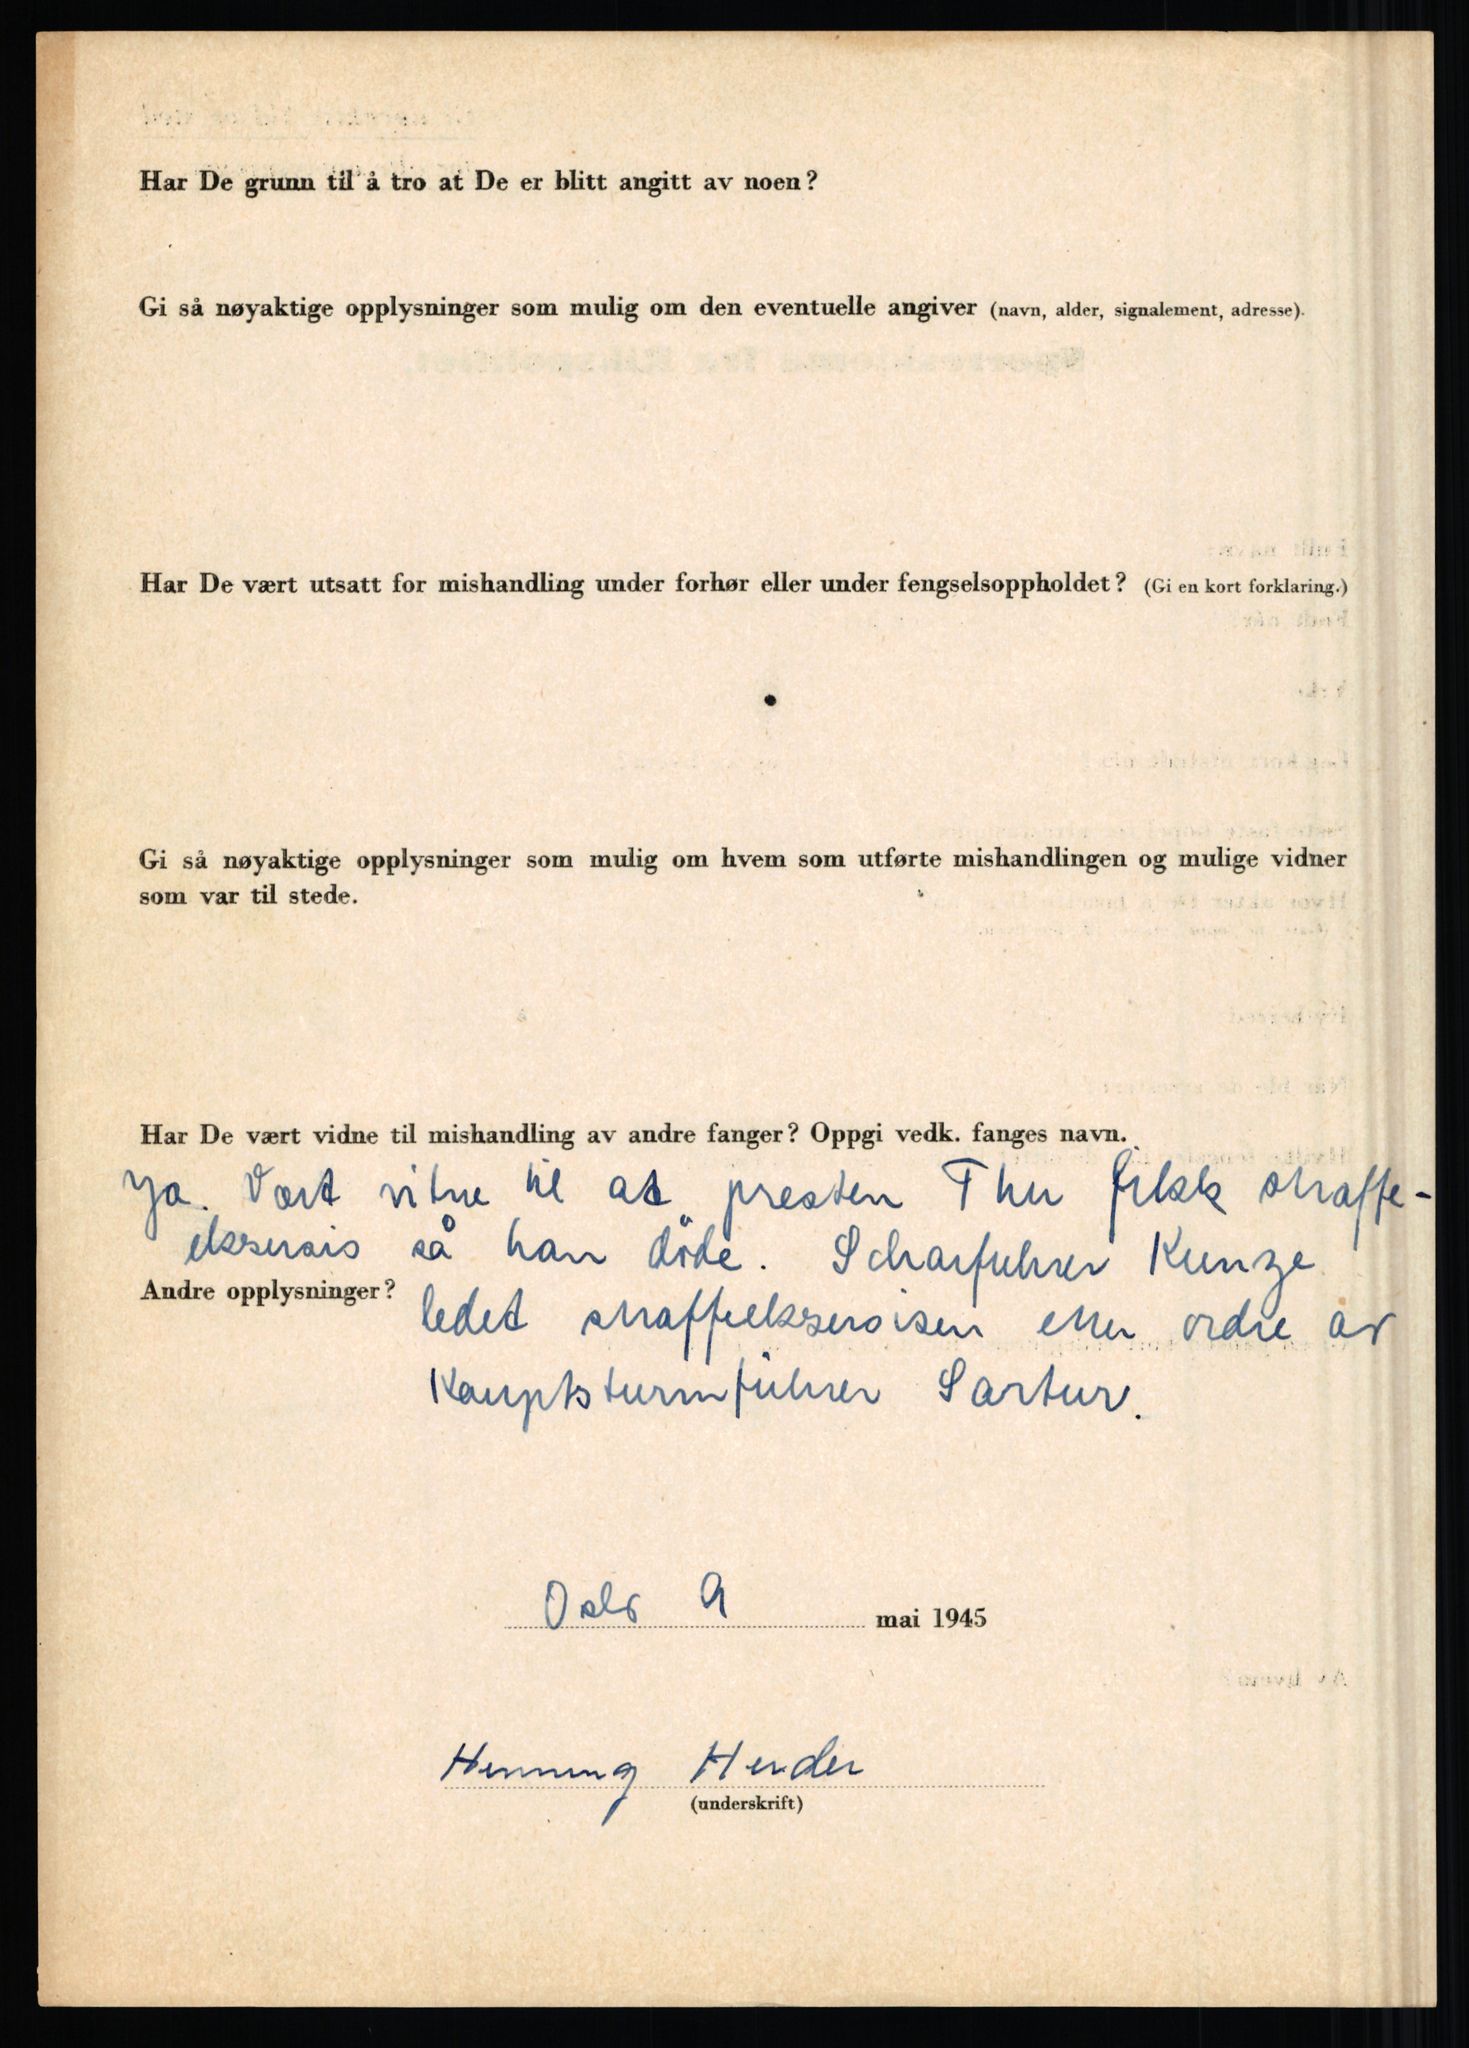 Har De grunn til å tro at De er blitt angitt av noen?
Gi så nøyaktige opplysninger som mulig om den eventuelle angiver (navn, alder, signalement, adresse).
Har De vært utsatt for mishandling under forhør eller under fengselsoppholdet? (Gi en kort forklaring.)
Gi så nøyaktige opplysninger som mulig om hvem som utførte mishandlingen og mulige vidner
som var til stede.
Har De vært vidne til mishandling av andre fanger? Oppgi vedk. fanges navn.
Ja. Vært vitne til at presten Thu fikk straffe-
eksersis så han döde. Scharfuhrer Kunze
Andre opplysninger?
ledet straffeeksersisen etter ordre av
Hauptsturmführer Sartur.
Oslo 9 mai 1945
Henning Herder
(underskrift)